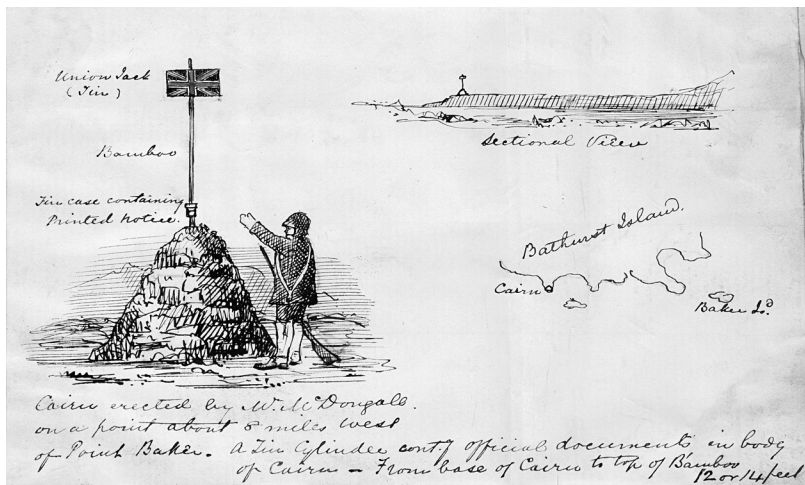 Union Jack
(Tin)
Bamboo
Tin case containing
Printed notice.
Sectional View
Bathurst Island.
Cairn
Baker Id.
Cairn erected by Mr. McDougall.
on a point about 8 miles West
of Point Baker. A Tin Cylinder contg official documents in body
of Cairn – From base of Cairn to top of Bamboo
12 or 14 feet